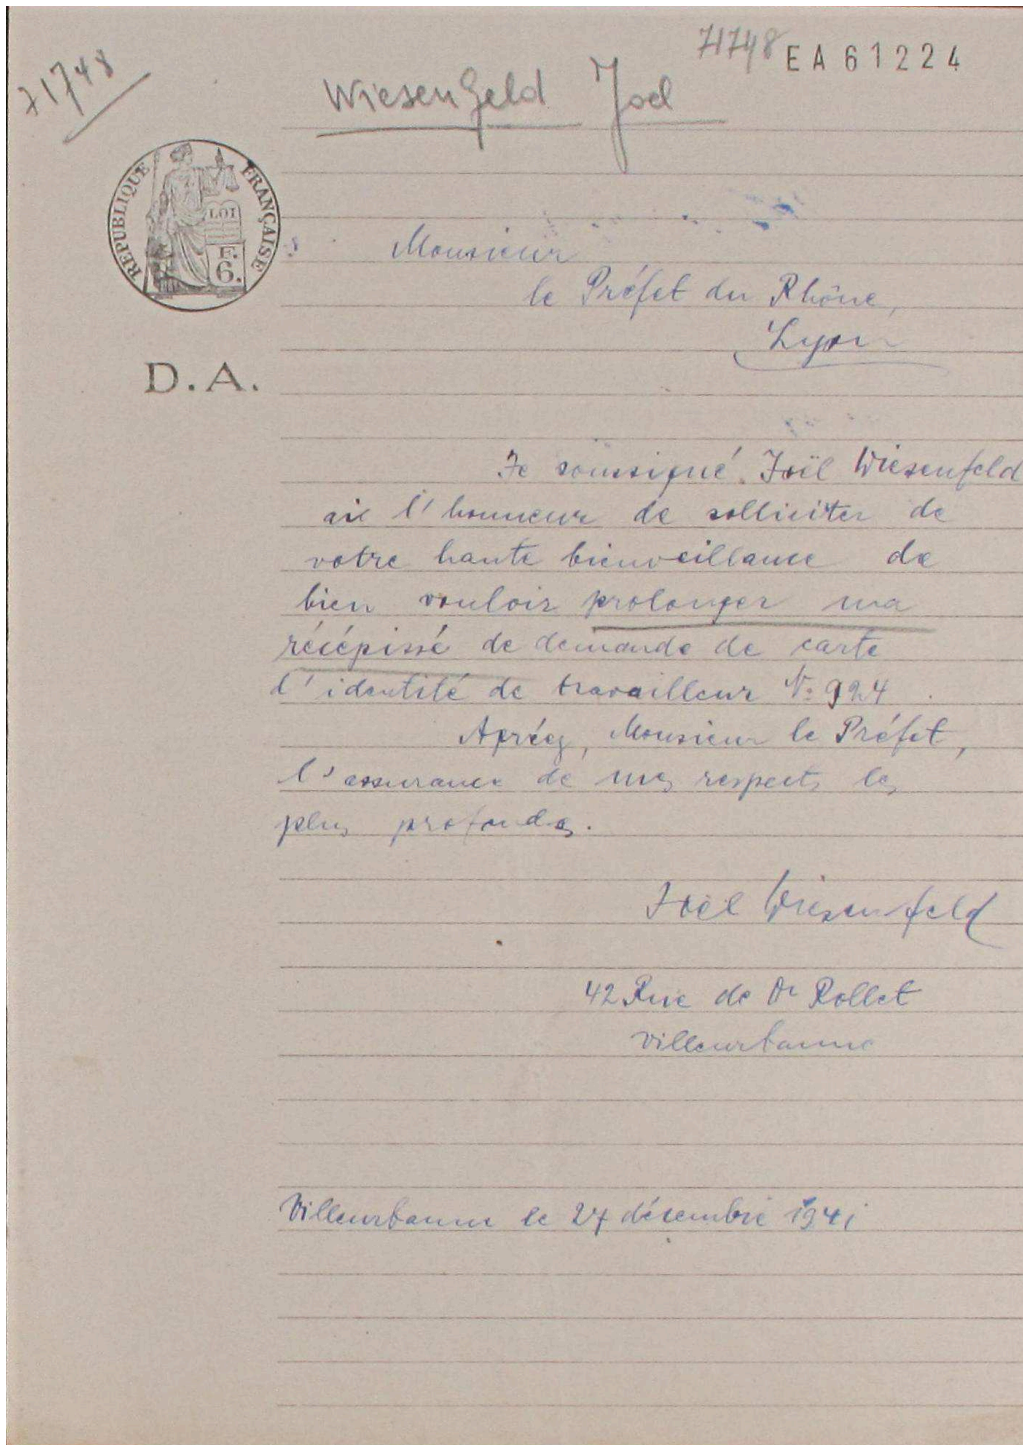 71748
71748 EA 61224
Wiesenfeld Joel
REPUBLIQUE FRANÇAISE
LOI
F.
6.
Monsieur
le Préfet du Rhône,
Lyon
D.A.
Je soussigné, Joël Wiesenfeld
ai l'honneur de solliciter de
votre haute bienveillance de
bien vouloir prolonger ma
récépissé de demande de carte
d'identité de travailleur No 924.
Apréez, Monsieur le Préfet,
l'assurance de mes respects les
plus profonds.
Joël Wiesenfeld
42 Rue de Dr Rollet
Villeurbanne
Villeurbanne le 27 décembre 1941